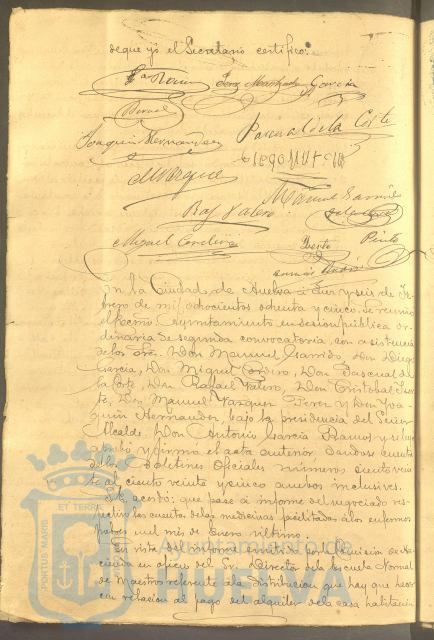 de que yo el Secretario certifico:
Ga Ramos Jose Machado García
Bernal
Joaquin Hernandez Pascual de la Corte
Diego Garcia
M Vazquez
Manuel Garrido
Raf Valero
Miguel Cordero Pinto
En la Ciudad de Huelva a diez y seis de Fe-
brero de mil ochocientos ochenta y cinco, se reunió
el Excmo Ayuntamiento en sesión pública or-
dinaria de segunda convocatoria, con asistencia
de los Sres. Don Manuel Garrido, Don Diego
Garcia, Don Miguel Cordero, Don Pascual de
la Corte, Don Rafael Valero, Don Cristobal
Don Manuel Vazquez Perez y Don Joa-
quin Hernandez, bajo la presidencia del Señor
Alcalde, Don Antonio García Ramos y se leyó
aprobó y firmó el acta anterior dandose cuenta
de los Boletines Oficiales números ciento vein-
te al ciento veinte y cinco ambos inclusives.
Se acordó: que pase a informe del negociado res-
pectivo la cuenta de las medicinas facilitadas a los enfermos
pobres en el mes de Enero último.
En vista del informe emitido por
en oficio del Sr. Director de la Escuela Normal
de Maestros referente a la distribucion que hay que hacer
con relacion al pago del alquiler de la casa habitación
PORTUS MARIS ET TERRE
Ayuntamiento de
HUELVA